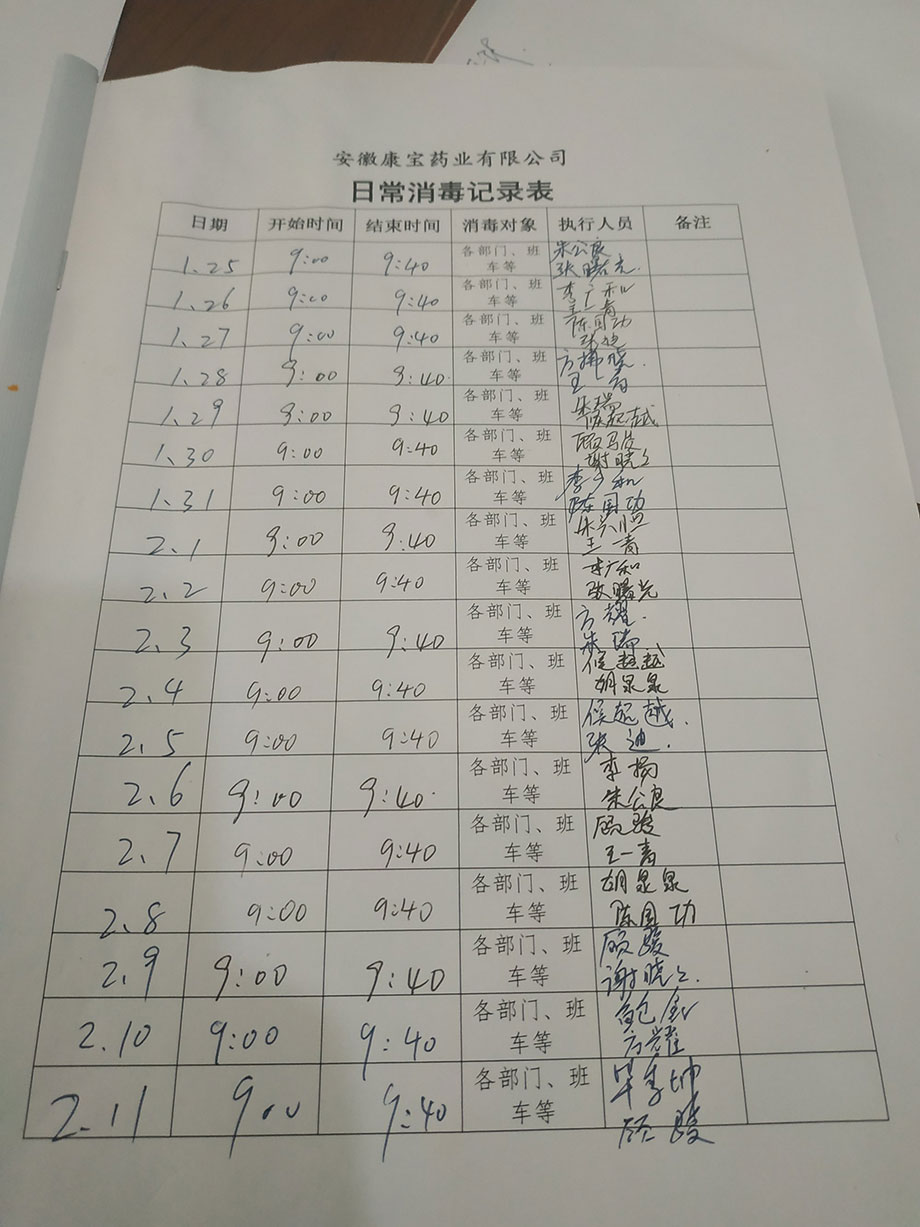 安徽康宝药业有限公司
日常消毒记录表
日期 开始时间 结束时间 消毒对象 执行人员 备注
1.25 9:00 9:40 各部门、班车等 朱公良 张曙光
1.26 9:00 9:40 各部门、班车等 李广和
1.27 9:00 9:40 各部门、班车等 陈国功 张迪
1.28 9:00 9:40 各部门、班车等
1.29 9:00 9:40 各部门、班车等 朱瑞
1.30 9:00 9:40 各部门、班车等
1.31 9:00 9:40 各部门、班车等 李广和 陈国功
2.1 9:00 9:40 各部门、班车等
2.2 9:00 9:40 各部门、班车等 李广和 张曙光
2.3 9:00 9:40 各部门、班车等 方耀 朱瑞
2.4 9:00 9:40 各部门、班车等 胡泉泉
2.5 9:00 9:40 各部门、班车等 侯超越 张迪
2.6 9:00 9:40 各部门、班车等 李杨 朱公良
2.7 9:00 9:40 各部门、班车等 顾骏 王一青
2.8 9:00 9:40 各部门、班车等 胡泉泉 陈国功
2.9 9:00 9:40 各部门、班车等 顾骏
2.10 9:00 9:40 各部门、班车等 方耀
2.11 9:00 9:40 各部门、班车等 顾骏